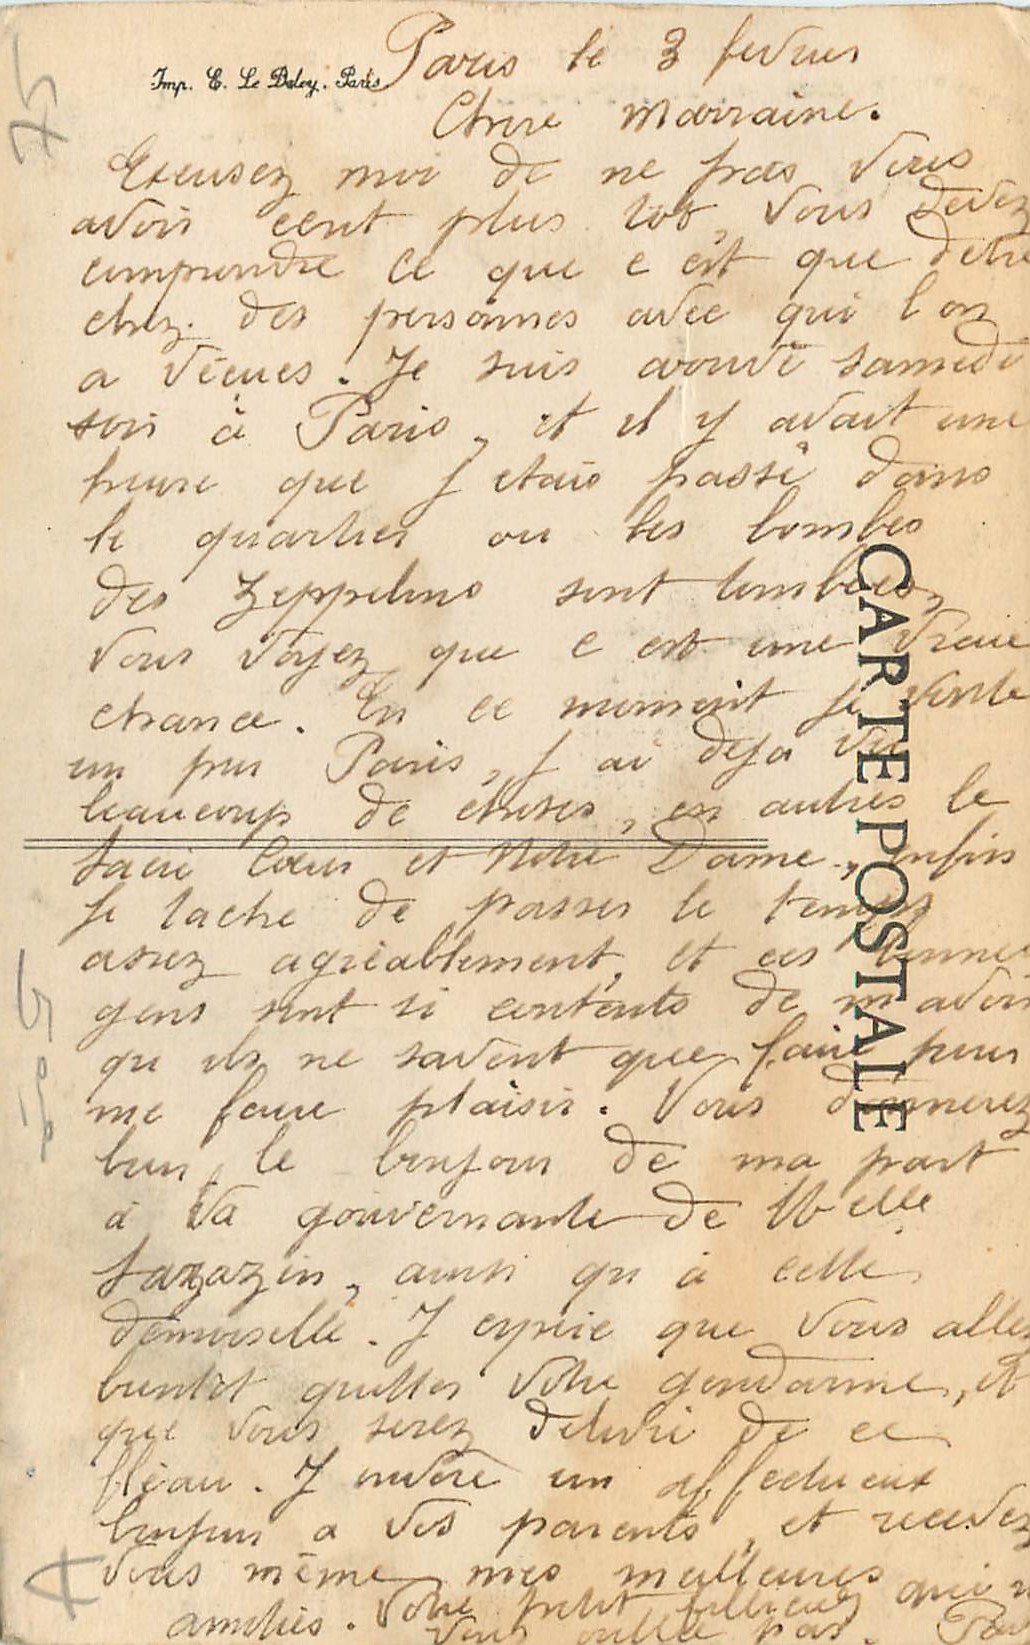 Imp. E. Le Deley. Paris
Paris le 3 fevrier
Chere marraine.
Excusez moi de ne pas vous
avoir ecrit plus tot, vous devez
comprendre ce que c est que d etre
chez des personnes avec qui l on
a vécues. Je suis arrivé samedi
soir à Paris, et il y avait une
heure que j etais passé dans
le quartier ou les bombes
des Zeppelins sont tombées,
vous voyez que c est une vraie
chance. En ce moment je visite
un peu Paris, j ai deja vu
beaucoup de choses, en autres le
Sacré Cœur et Notre Dame, enfin
je tache de passer le temps
assez agréablement, et ces bonnes
gens sont si contents de m avoir
qu ils ne savent que faire pour
me faire plaisir. Vous donnerez
bien le bonjour de ma part
à la gouvernante de Melle
Sarazin, ainsi qu à cette
demoiselle. J espère que vous allez
bientot quitter votre gendarme, et
que vous serez delivré de ce
fléau. J envoie un affectueux
bonjour a vos parents, et recevez
vous même mes meilleures
amitiés. Votre petit filleul qui n
vous oublie pas.
CARTE POSTALE